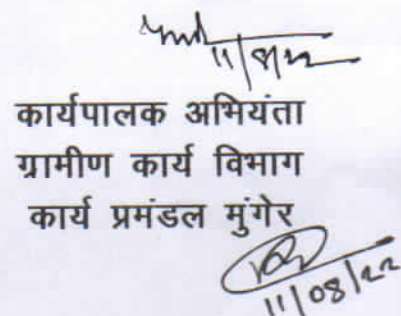 11/8/22
कार्यपालक अभियंता
ग्रामीण कार्य विभाग
कार्य प्रमंडल मुंगेर
11/08/22